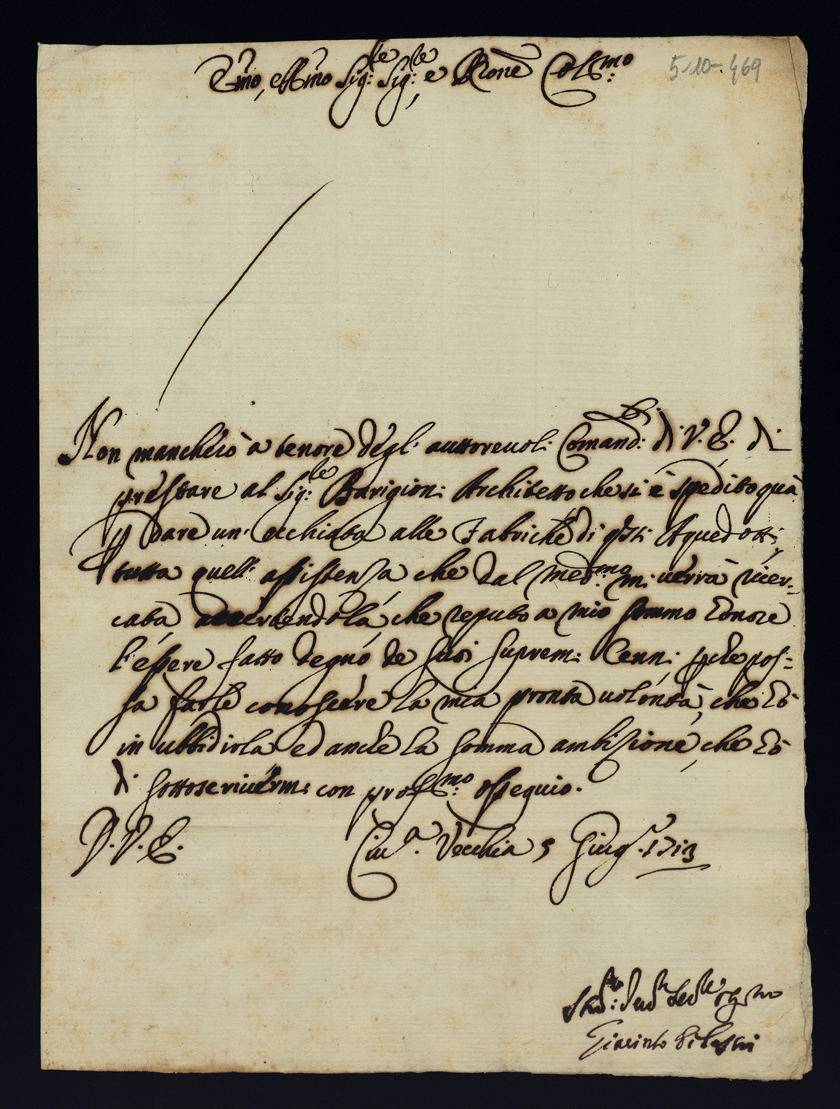 Emo, e Rmo Sig:re Sig:re, e Prone Colmo: 5-10-469
Non mancherò à tenore degl' auttorevoli Comandi: di V. E. di
prestare al Sig:re Barigioni: Architetto che si è spedito quà
p dare un' occhiata alle Fabriche di qsti Aquedotti,
tutta quell' assistenza che dal medmo mi verrà ricer-
cata accertandola che reputo a mio sommo honore
l'essere fatto degno de suoi supremi: Cenni: pche pos-
sa farle conoscere la mia pronta volontà, che hò
in ubbidirla ed anche la somma ambizione, che hò
di sottoscrivermi con profmo: ossequio.
D. V. E. Civa. Vecchia 5 Giugo. 1713
Giacinto